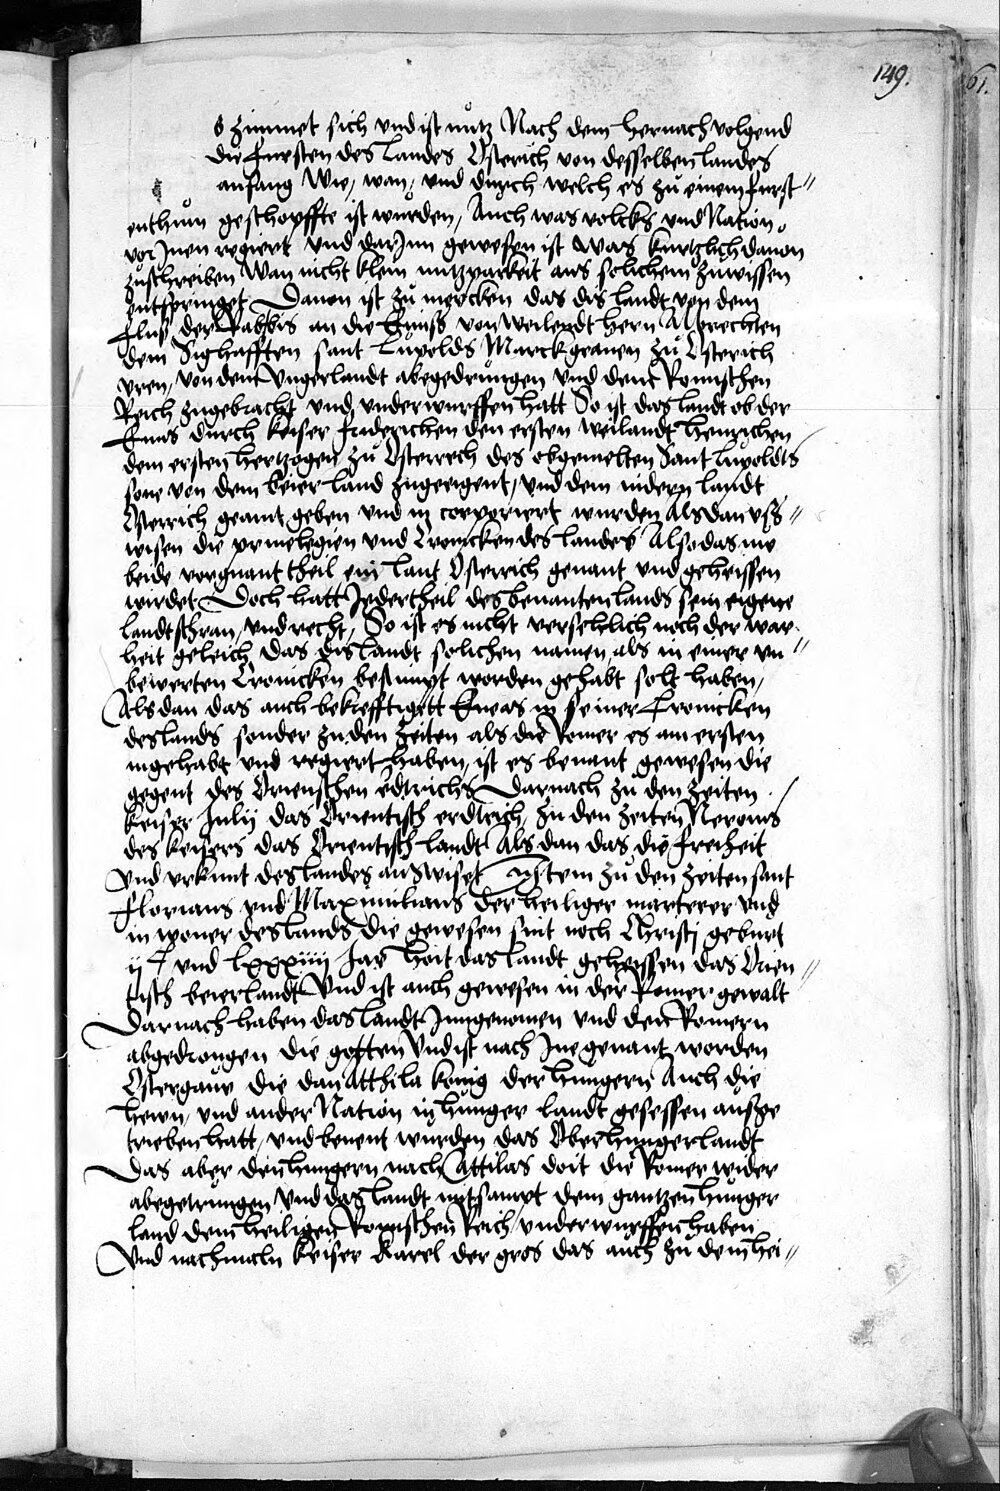 149.
61.
o zimmet sich vnd ist nutz Nach dem hernach volgend
die Fursten des landes Osterich von desselben landes
anfang Wie, wan, vnd durch welch es zu einem furst〃
enthum geschopffte ist wurden, Auch was volcks vnd Nation
vor Jnen regiert vnd dar Jnn gewesen ist was kurtzlich dauon
zuschreiben Wan nicht klein nutzparkeit aus solichem zuwissen
entspringet Dauon ist zu mercken das dis landt von dem
Fluß der Rabbis an die Ennß von weilendt hern Albrechten
dem Sighafften sant Lupolds Marckgrauen zu Osterich
vren, von dem Vngerlandt abegedrungen vnd dem Romischen
Reich zugebracht vnd vnderwurffen hatt So ist das landt ob der
Enns durch keiser Friderichen den ersten weilandt henrichen
dem ersten hertzogen zu Osterrech des obgemelten Sant lupoldts
sone von dem beier land zugeeigent, vnd dem nidern landt
Osterrich geamt geben vnd in corporiert wurden Als dan vß〃
wisen die priuelegien vnd Cronicken des landes Also das nw
beide vorgnant theil ein lant Osterrich genant vnd geheissen
wirdet Doch hatt Jedertheil des benanten lands sein eigene
landtschran, vnd recht, So ist es nicht versehlich noch der war〃
heit geleich das dis landt solichen namen, als in einer vn〃
bewerten Cronicken bestimpt worden gehabt solt haben,
Als dan das auch bekrefftigett Eneas in seiner Cronicken
des lands sonder zu den zeiten als die Romer es am ersten
ingehabt vnd regiert haben, ist es benant gewesen die
gegent des Orienschen edtrichs Darnach zu den zeiten
keiser Julij das Orientisch erdtrich, zu den zeiten Neronis
des keisers das Orientisch landt Als dan das die freiheit
vnd vrkunt des landes auswiset Jtem zu den zeiten sant
Florians vnd Maximilians der heiliger marterer vnd
in woner des lands die gewesen sint noch Christi geburt
ij C vnd lxxxiiij Jar hort das landt geheissen das Orien〃
tisch beierlandt Vnd ist auch gewesen in der Romer gewalt
Dar nach haben das landt Jnngenomen vnd den Romern
abgedrongen die gotten Vnd ist nach Jne genant worden
Ostergauw die dan Atthila konig der hungern Auch die
hewn, vnd ander Nation in hunger landt gesessen außge
trieben hatt, vnd benent wurden das Oberhungerlandt
Das aber den hungern nach Attilas doit die Romer wider
abegetrungen Vnd das landt mitsampt dem gantzen hunger
land dem heiligen Romischen Reich vnderwurffen haben
Vnd nachmaln keiser Karel der gros das auch zu dem hei〃